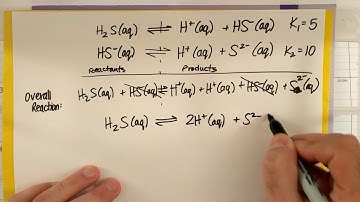 H₂S(aq) ⇌ H⁺(aq) + HS⁻(aq) K₁=5
HS⁻(aq) ⇌ H⁺(aq) + S²⁻(aq) K₂=10
Reactants Products
Overall Reaction: H₂S(aq) + HS⁻(aq) ⇌ H⁺(aq) + H⁺(aq) + HS⁻(aq) + S²⁻(aq)
H₂S(aq) ⇌ 2H⁺(aq) + S²⁻